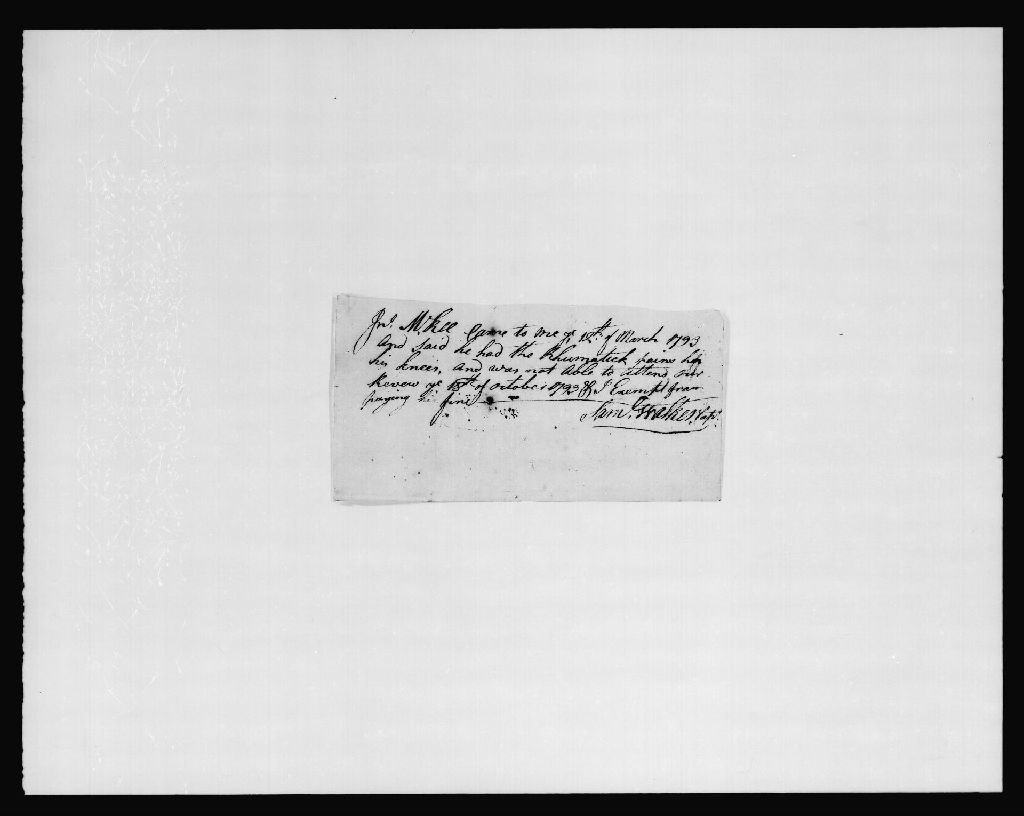 Jno. McKee Came to me ye 12th of March 1793
and said he had the Rhumatick pains in
his knees, and was not able to attend our
Revew ye 15th of october 1792 & I Exempt from
paying his fine
Saml. Capt.